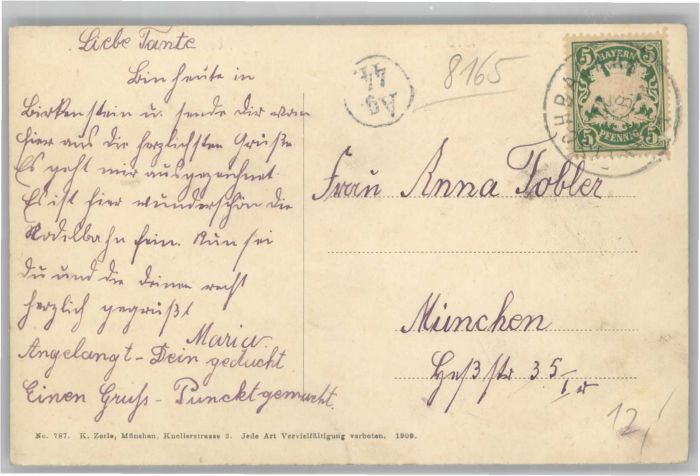 Liebe Tante
Bin heute in
Birkenstein u. sende dir von
hier aus die herzlichsten Grüße
Es geht mir ausgezeichnet.
Es ist hier wunderschön die
Rodelbahn fein. Nun sei
du und die deinen recht
herzlich gegrüßt
Maria
Angelangt – Dein gedacht
Einen Gruss – Puncktgemacht.
No. 787. K. Zerle, München, Knollerstrasse 3. Jede Art Vervielfältigung verboten. 1909.
Ag.
44.
8165
BAYERN
5 5
5 5
PFENNIG
Frau Anna Tobler
München
Heßstr 35
12,